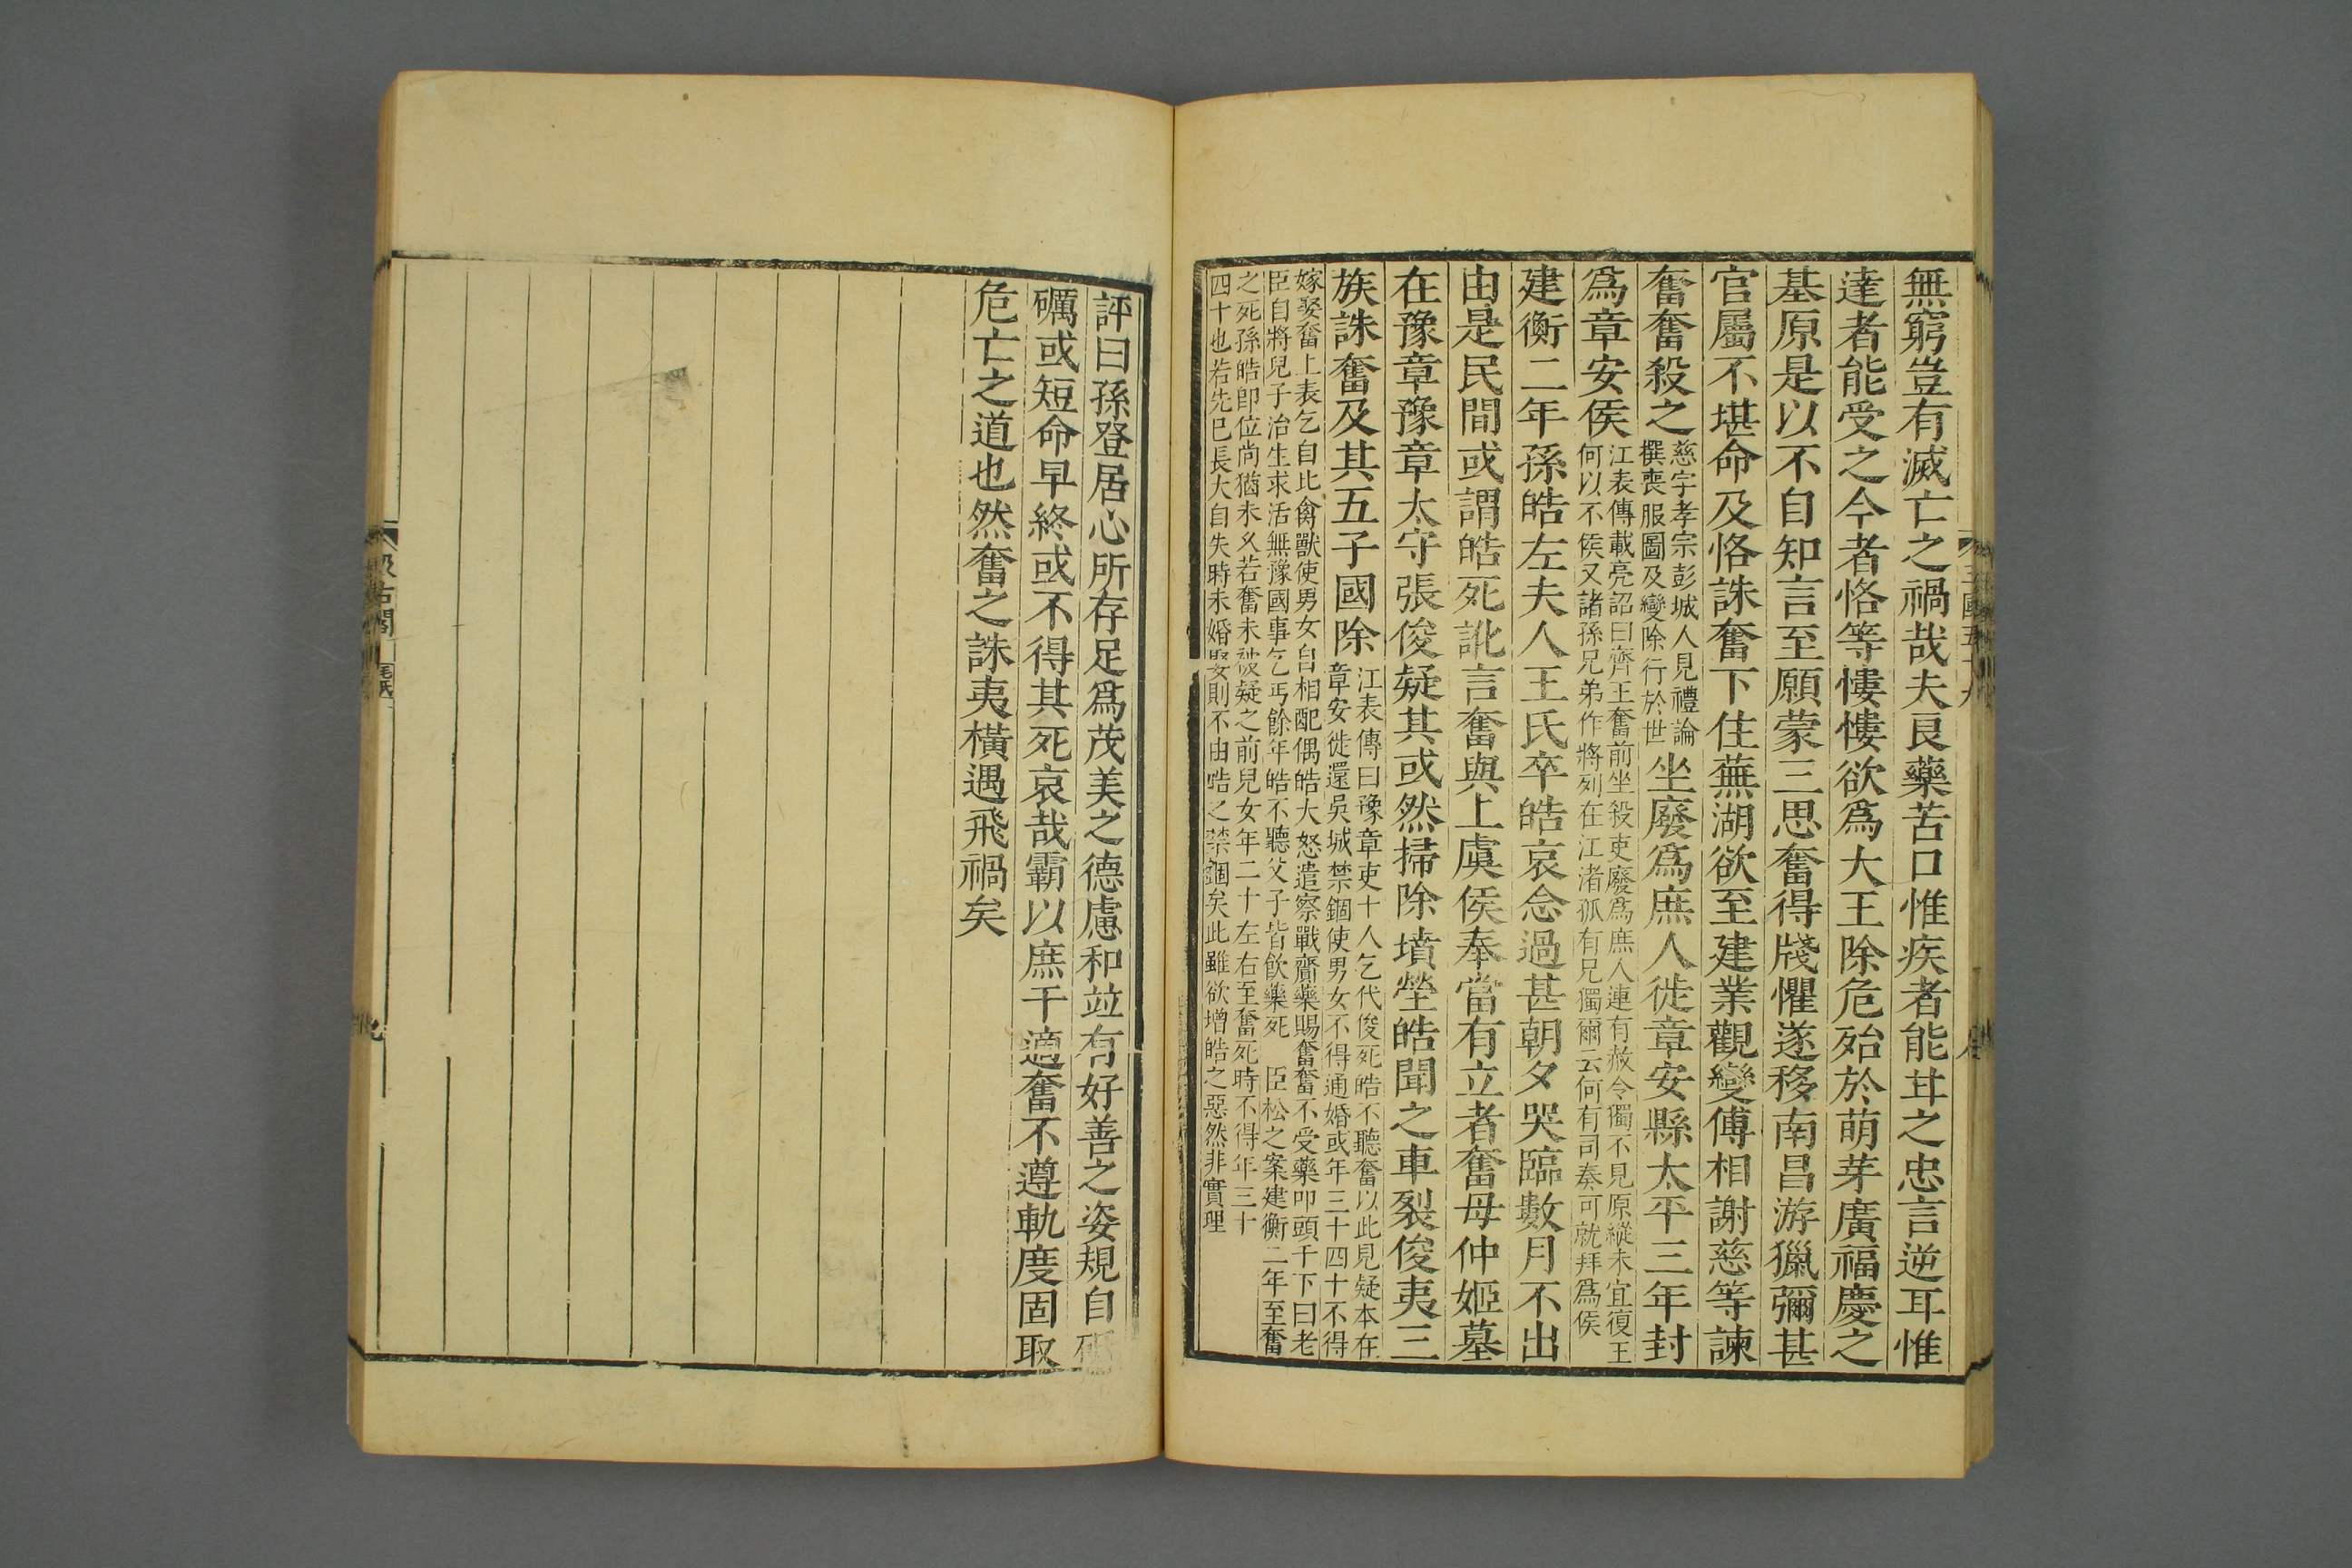 無窮豈有滅亡之禍哉夫良藥苦口惟疾者能甘之忠言逆耳惟
達者能受之今者恪等慺慺欲爲大王除危殆於萌芽廣福慶之
基原是以不自知言至願蒙三思奮得牋懼遂移南昌游獵彌甚
官屬不堪命及恪誅奮下住蕪湖欲至建業觀變傅相謝慈等諫
奮奮殺之
慈字孝宗彭城人見禮論
撰喪服圖及變除行於世
坐廢爲庶人徙章安縣太平三年封
爲章安侯
江表傳載亮詔曰齊王奮前坐殺吏廢爲庶人連有赦令獨不見原縱未宜復王
何以不侯又諸孫兄弟作將列在江渚孤有兄獨爾云何有司奏可就拜爲侯
建衡二年孫皓左夫人王氏卒皓哀念過甚朝夕哭臨數月不出
由是民間或謂皓死訛言奮與上虞侯奉當有立者奮母仲姬墓
在豫章豫章太守張俊疑其或然掃除墳塋皓聞之車裂俊夷三
族誅奮及其五子國除
江表傳曰豫章吏十人乞代俊死皓不聽奮以此見疑本在
章安徙還吳城禁錮使男女不得通婚或年三十四十不得
嫁娶奮上表乞自比禽獸使男女自相配偶皓大怒遣察戰齎藥賜奮奮不受藥叩頭千下曰老
臣自將兒子治生求活無豫國事乞丐餘年皓不聽父子皆飲藥死　臣松之案建衡二年至奮
之死孫皓卽位尚猶未久若奮未被疑之前兒女年二十左右至奮死時不得年三十
四十也若先已長大自失時未婚娶則不由皓之禁錮矣此雖欲增皓之惡然非實理
評曰孫登居心所存足爲茂美之德慮和竝有好善之姿規自砥
礪或短命早終或不得其死哀哉霸以庶干適奮不遵軌度固取
危亡之道也然奮之誅夷橫遇飛禍矣